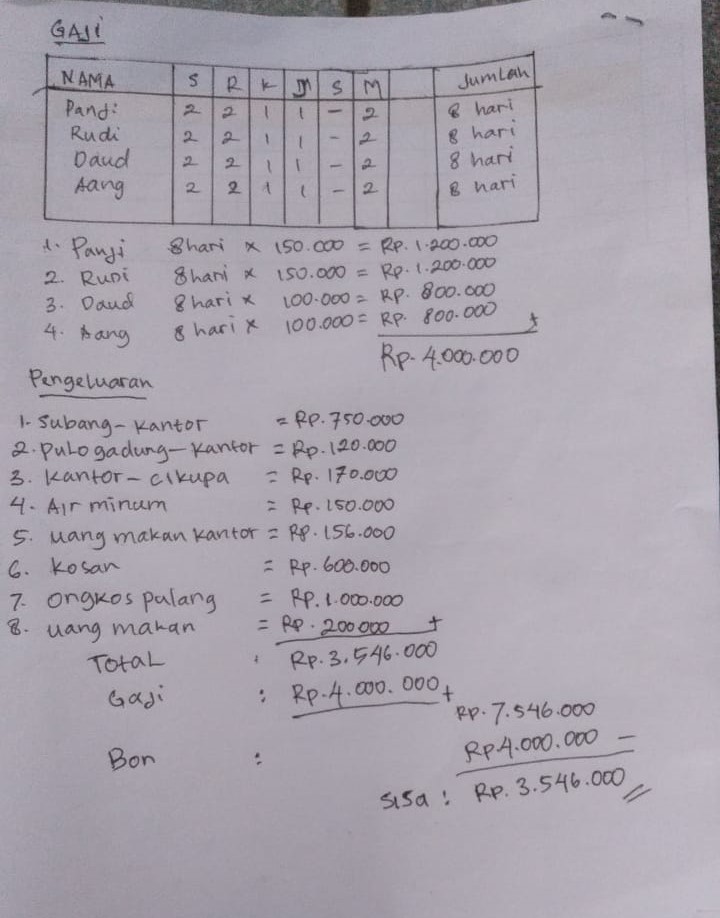 GAJI
NAMA S R K J S M Jumlah
Panji 2 2 1 1 - 2 8 hari
Rudi 2 2 1 1 - 2 8 hari
Daud 2 2 1 1 - 2 8 hari
Aang 2 2 1 1 - 2 8 hari
1. Panji 8 hari x 150.000 = Rp. 1.200.000
2. Rudi 8 hari x 150.000 = Rp. 1.200.000
3. Daud 8 hari x 100.000 = Rp. 800.000
4. Aang 8 hari x 100.000 = Rp. 800.000 +
Rp. 4.000.000
Pengeluaran
1. Subang - Kantor = Rp. 750.000
2. Pulo gadung - Kantor = Rp. 120.000
3. Kantor - cikupa = Rp. 170.000
4. Air minum = Rp. 150.000
5. uang makan kantor = Rp. 156.000
6. Kosan = Rp. 600.000
7. ongkos pulang = Rp. 1.000.000
8. uang makan = Rp. 200 000 +
Total : Rp. 3.546.000
Gaji : Rp. 4.000.000 +
Rp. 7.546.000
Bon : Rp 4.000.000 -
Sisa : Rp. 3.546.000 //